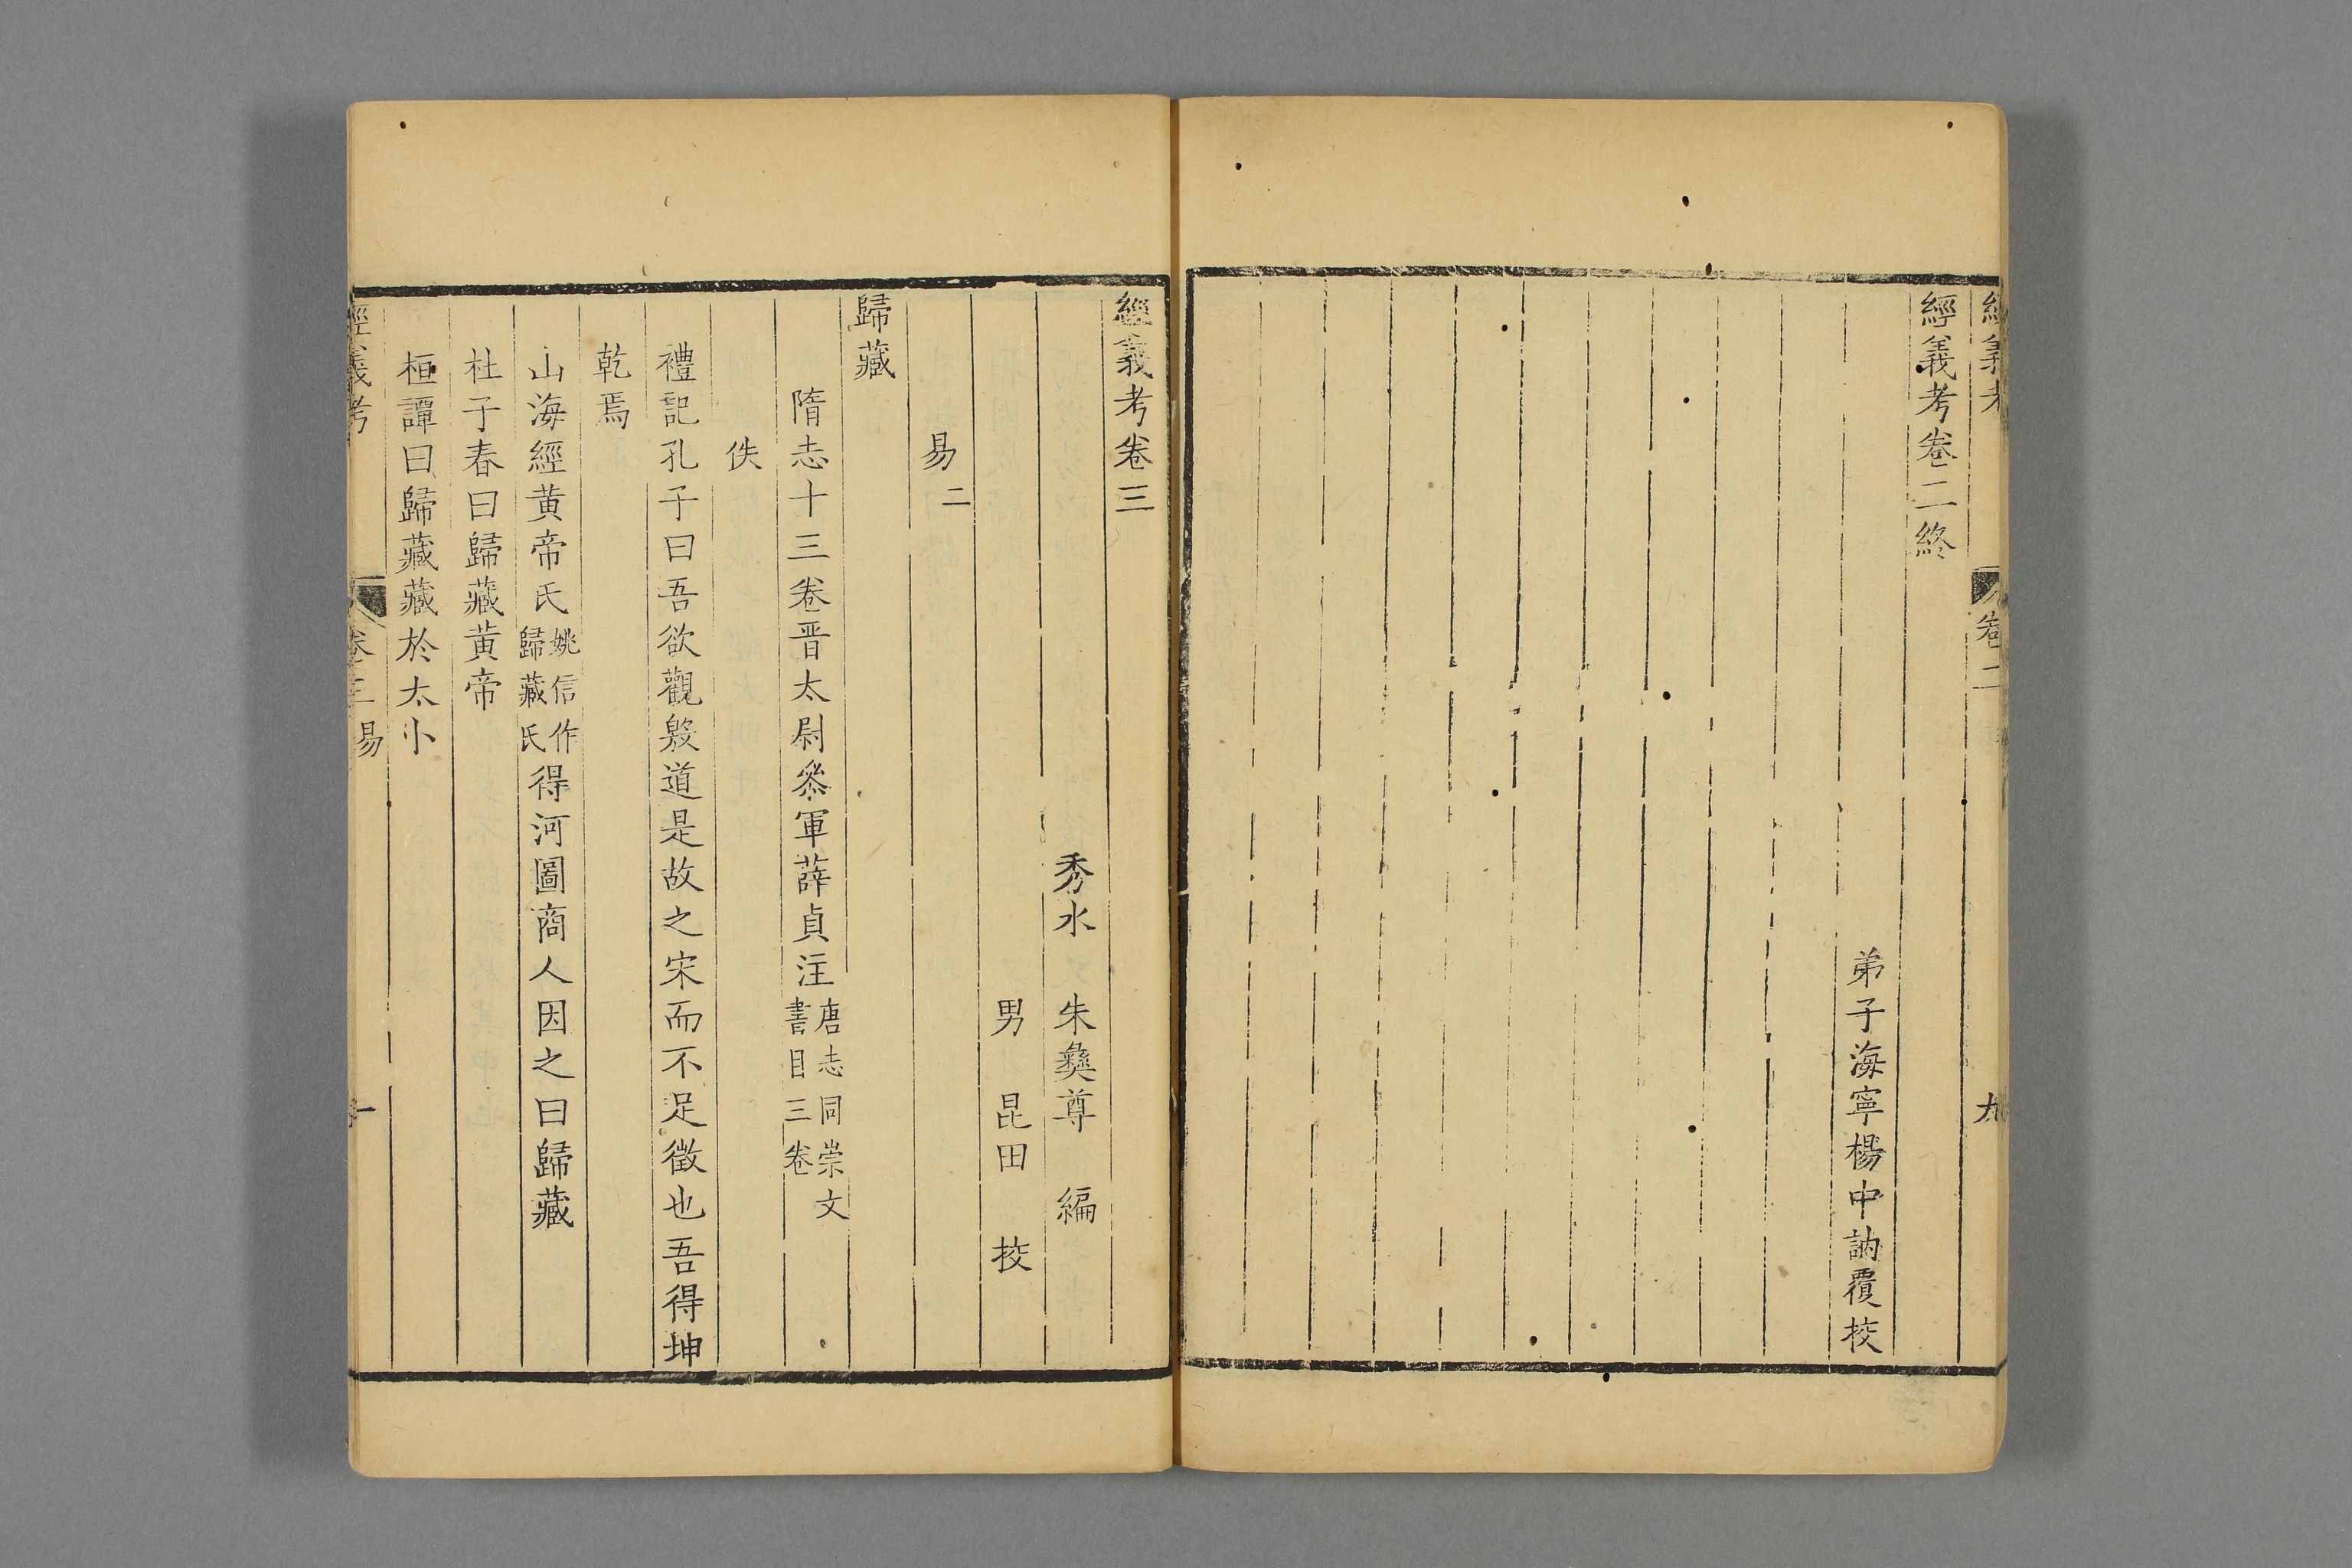 經義考
卷二
九
經義考卷二終
弟子海寧楊中訥覆挍
經義考卷三
秀水 朱彝尊 編
男 昆田 挍
易二
歸藏
隋志十三卷晋太尉叅軍薛貞注唐志同崇文書目三卷
佚
禮記孔子曰吾欲觀殷道是故之宋而不足徵也吾得坤
乾焉
山海經黄帝氏姚信作歸藏氏得河圖商人因之曰歸藏
杜子春曰歸藏黄帝
桓譚曰歸藏藏於太卜
經義考
卷三 易
一